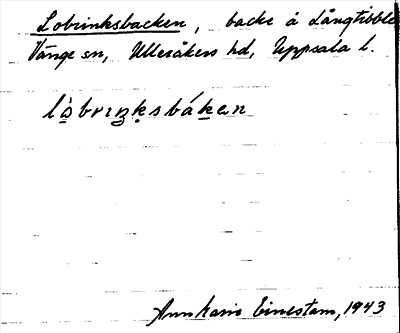 Lobrinksbacken, backe å Långtibble
Vänge sn, Ulleråkers hd, Uppsala l.
lò̱brıŋksbáken
Ann Karis Einestam, 1943